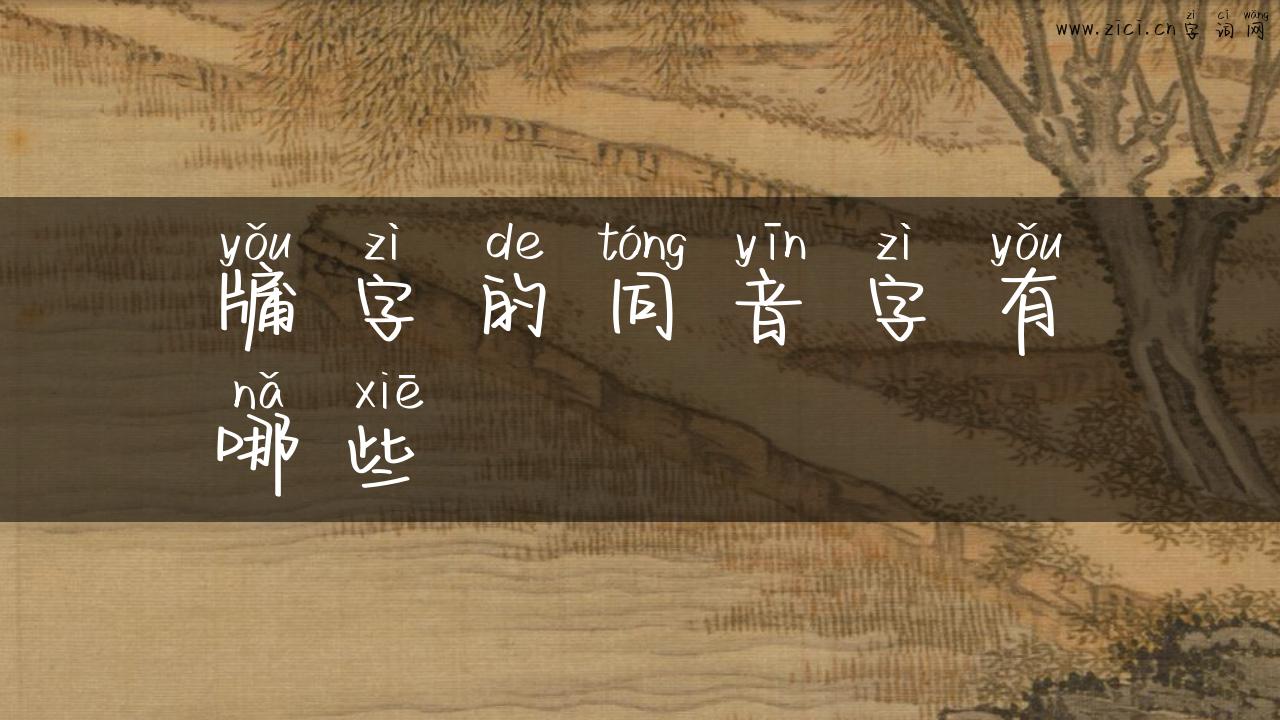 zì cí wǎng
www.zici.cn字词网
yǒu zì de tóng yīn zì yǒu
牖字的同音字有
nǎ xiē
哪些